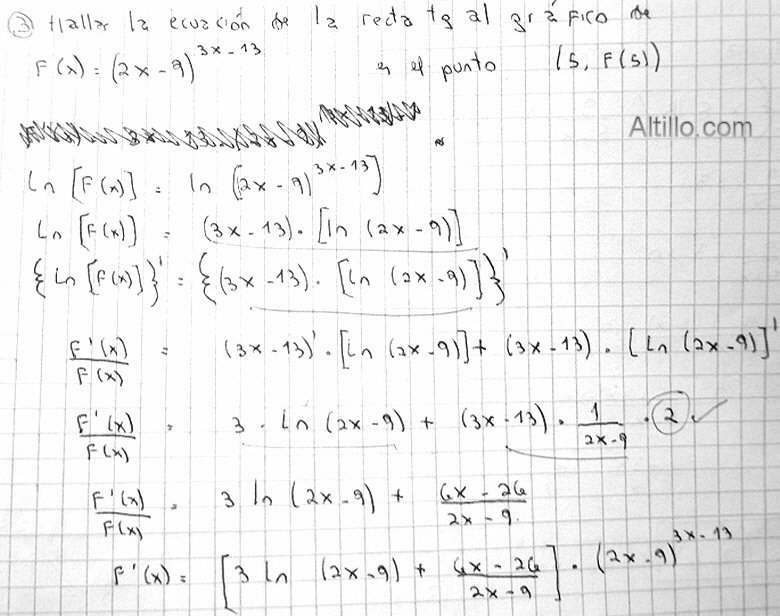 ③ Hallar la ecuación de la recta tg al gráfico de
F(x) = (2x - 9)^{3x - 13} en el punto (5, F(5))
Altillo.com
Ln [F(x)] = ln [(2x - 9)^{3x - 13}]
Ln [F(x)] = (3x - 13) · [ln (2x - 9)]
{Ln [F(x)]}' = {(3x - 13) · [Ln (2x - 9)]}'
F'(x)/F(x) = (3x - 13)' · [Ln (2x - 9)] + (3x - 13) · [Ln (2x - 9)]'
F'(x)/F(x) = 3 · Ln (2x - 9) + (3x - 13) · 1/(2x - 9) · 2 ✓
F'(x)/F(x) = 3 ln (2x - 9) + (6x - 26)/(2x - 9)
F'(x) = [3 ln (2x - 9) + (6x - 26)/(2x - 9)] · (2x - 9)^{3x - 13}